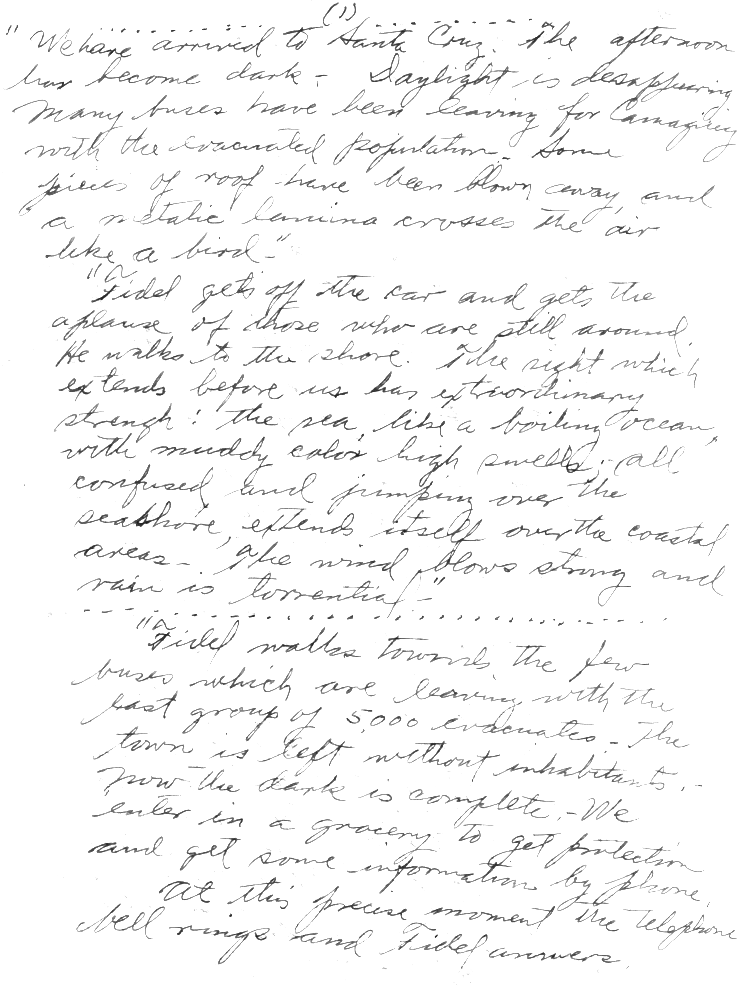 (1)
"We have arrived to Santa Cruz. The afternoon
has become dark - Daylight is desappearing
many buses have been leaving for Camaguey
with the evacuated population - Some
pieces of roof have been blown away, and
a metalic lamina crosses the air
like a bird -"
"Fidel gets off the car and gets the
aplause of those who are still around.
He walks to the shore. The sight which
extends before us has extraordinary
strengh: the sea like a boiling ocean,
with muddy color, high swells; - all
confused and jumping over the
seashore, extends itself over the coastal
areas - The wind blows strong and
rain is torrential" -
"Fidel walks towards the few
buses which are leaving with the
last group of 5,000 evacuates - The
town is left without inhabitants. -
now the dark is complete. - We
enter in a grocery to get protection
and get some information by phone.
At this precise moment the telephone
bell rings and Fidel answers.